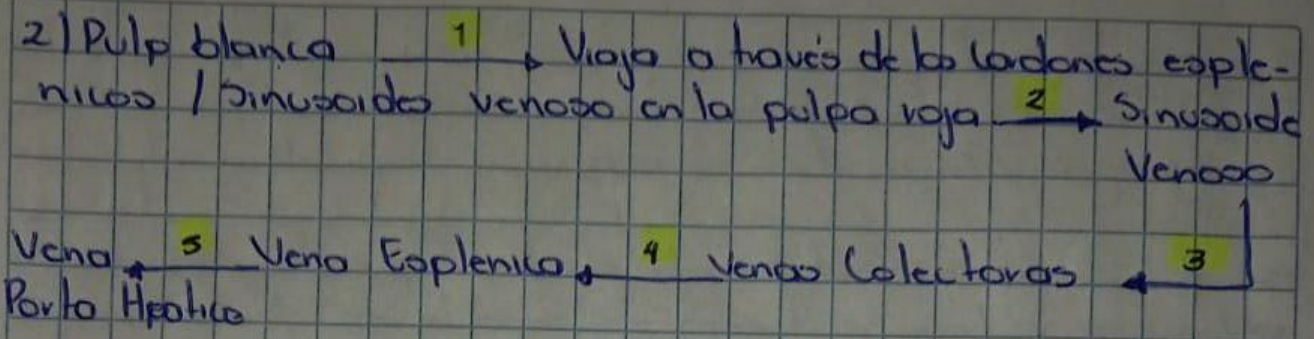 2) Pulp blanca 1 Viaja a través de los cordones esple-
nicos / Sinusoides venoso en la pulpa roja 2 Sinusoide
Venoso
Vena 5 Vena Esplenica 4 Venas Colectoras 3
Porta Hpatica